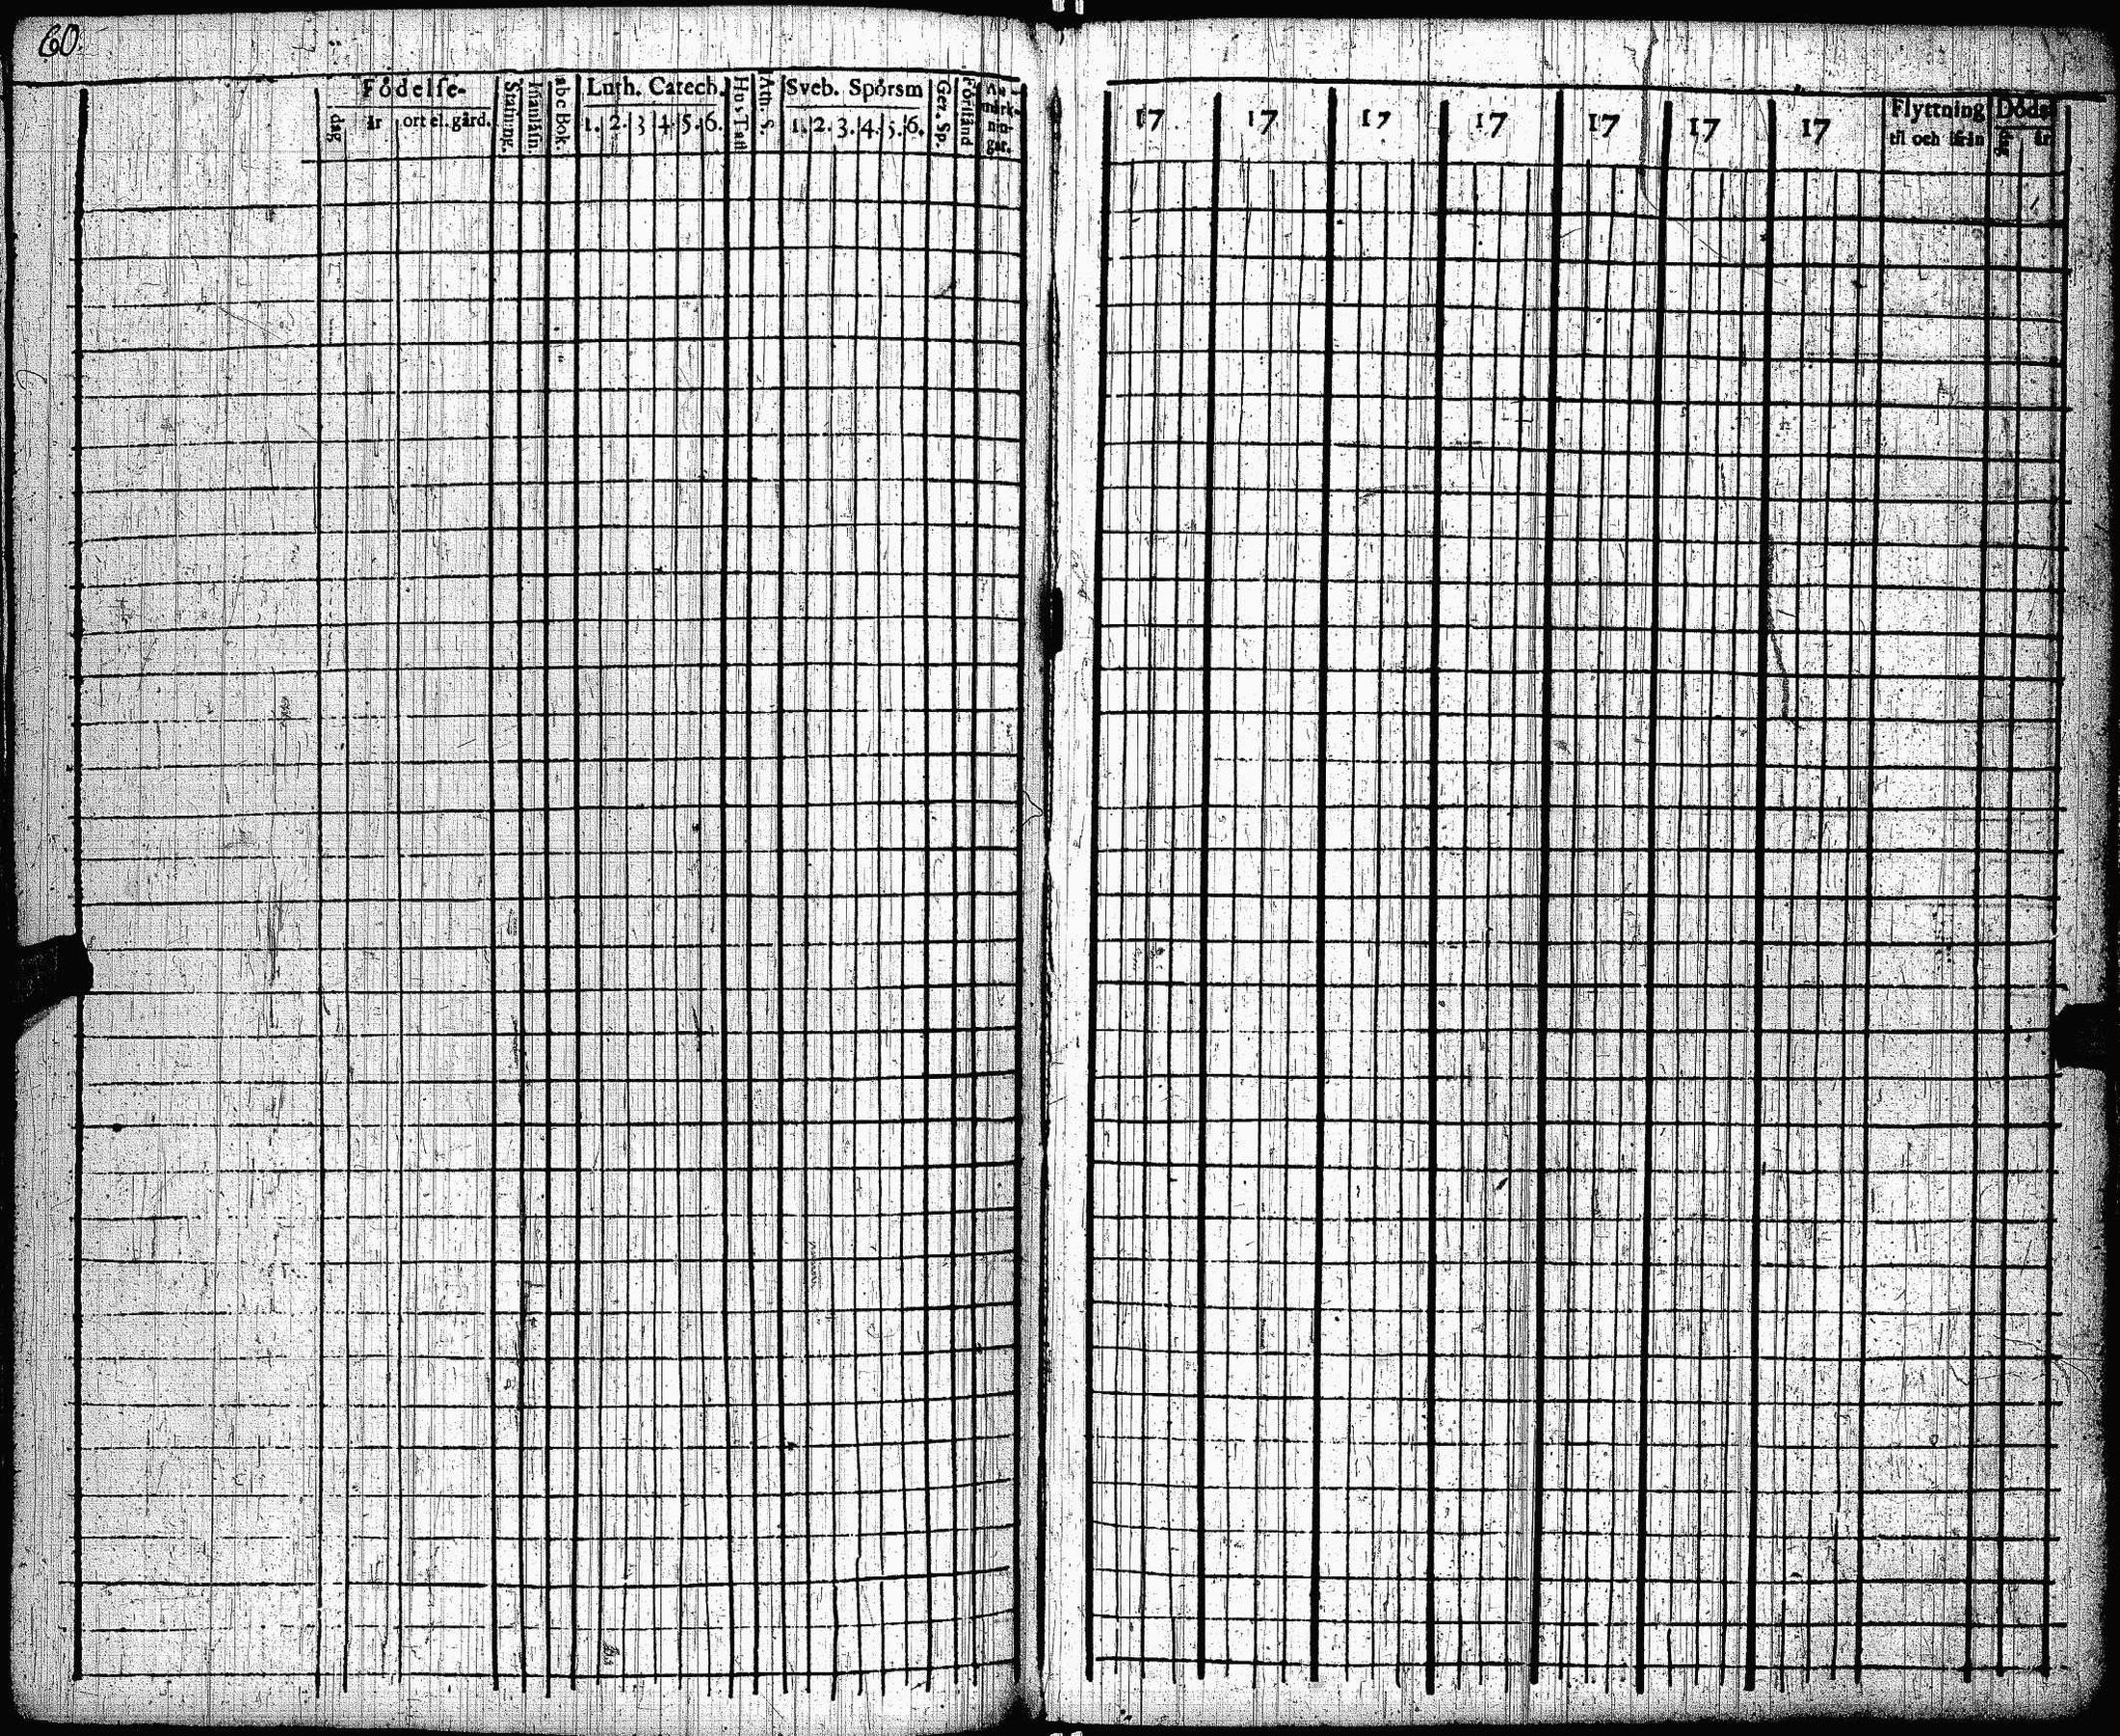 60.
Födelse-
dag
år
ort el. gård.
Stafning.
Innanläsn.
abc Bok.
Luth. Catech.
1. 2. 3 4. 5. 6.
Hus Tafl
Ath. S.
Sveb. Spörsm
1. 2. 3. 4. 5. 6.
Gez. Sp.
Förstånd
An-
märk-
nin-
gar.
17 17 17 17 17 17 17
Flyttning
til och ifrån
Döds-
dag
år